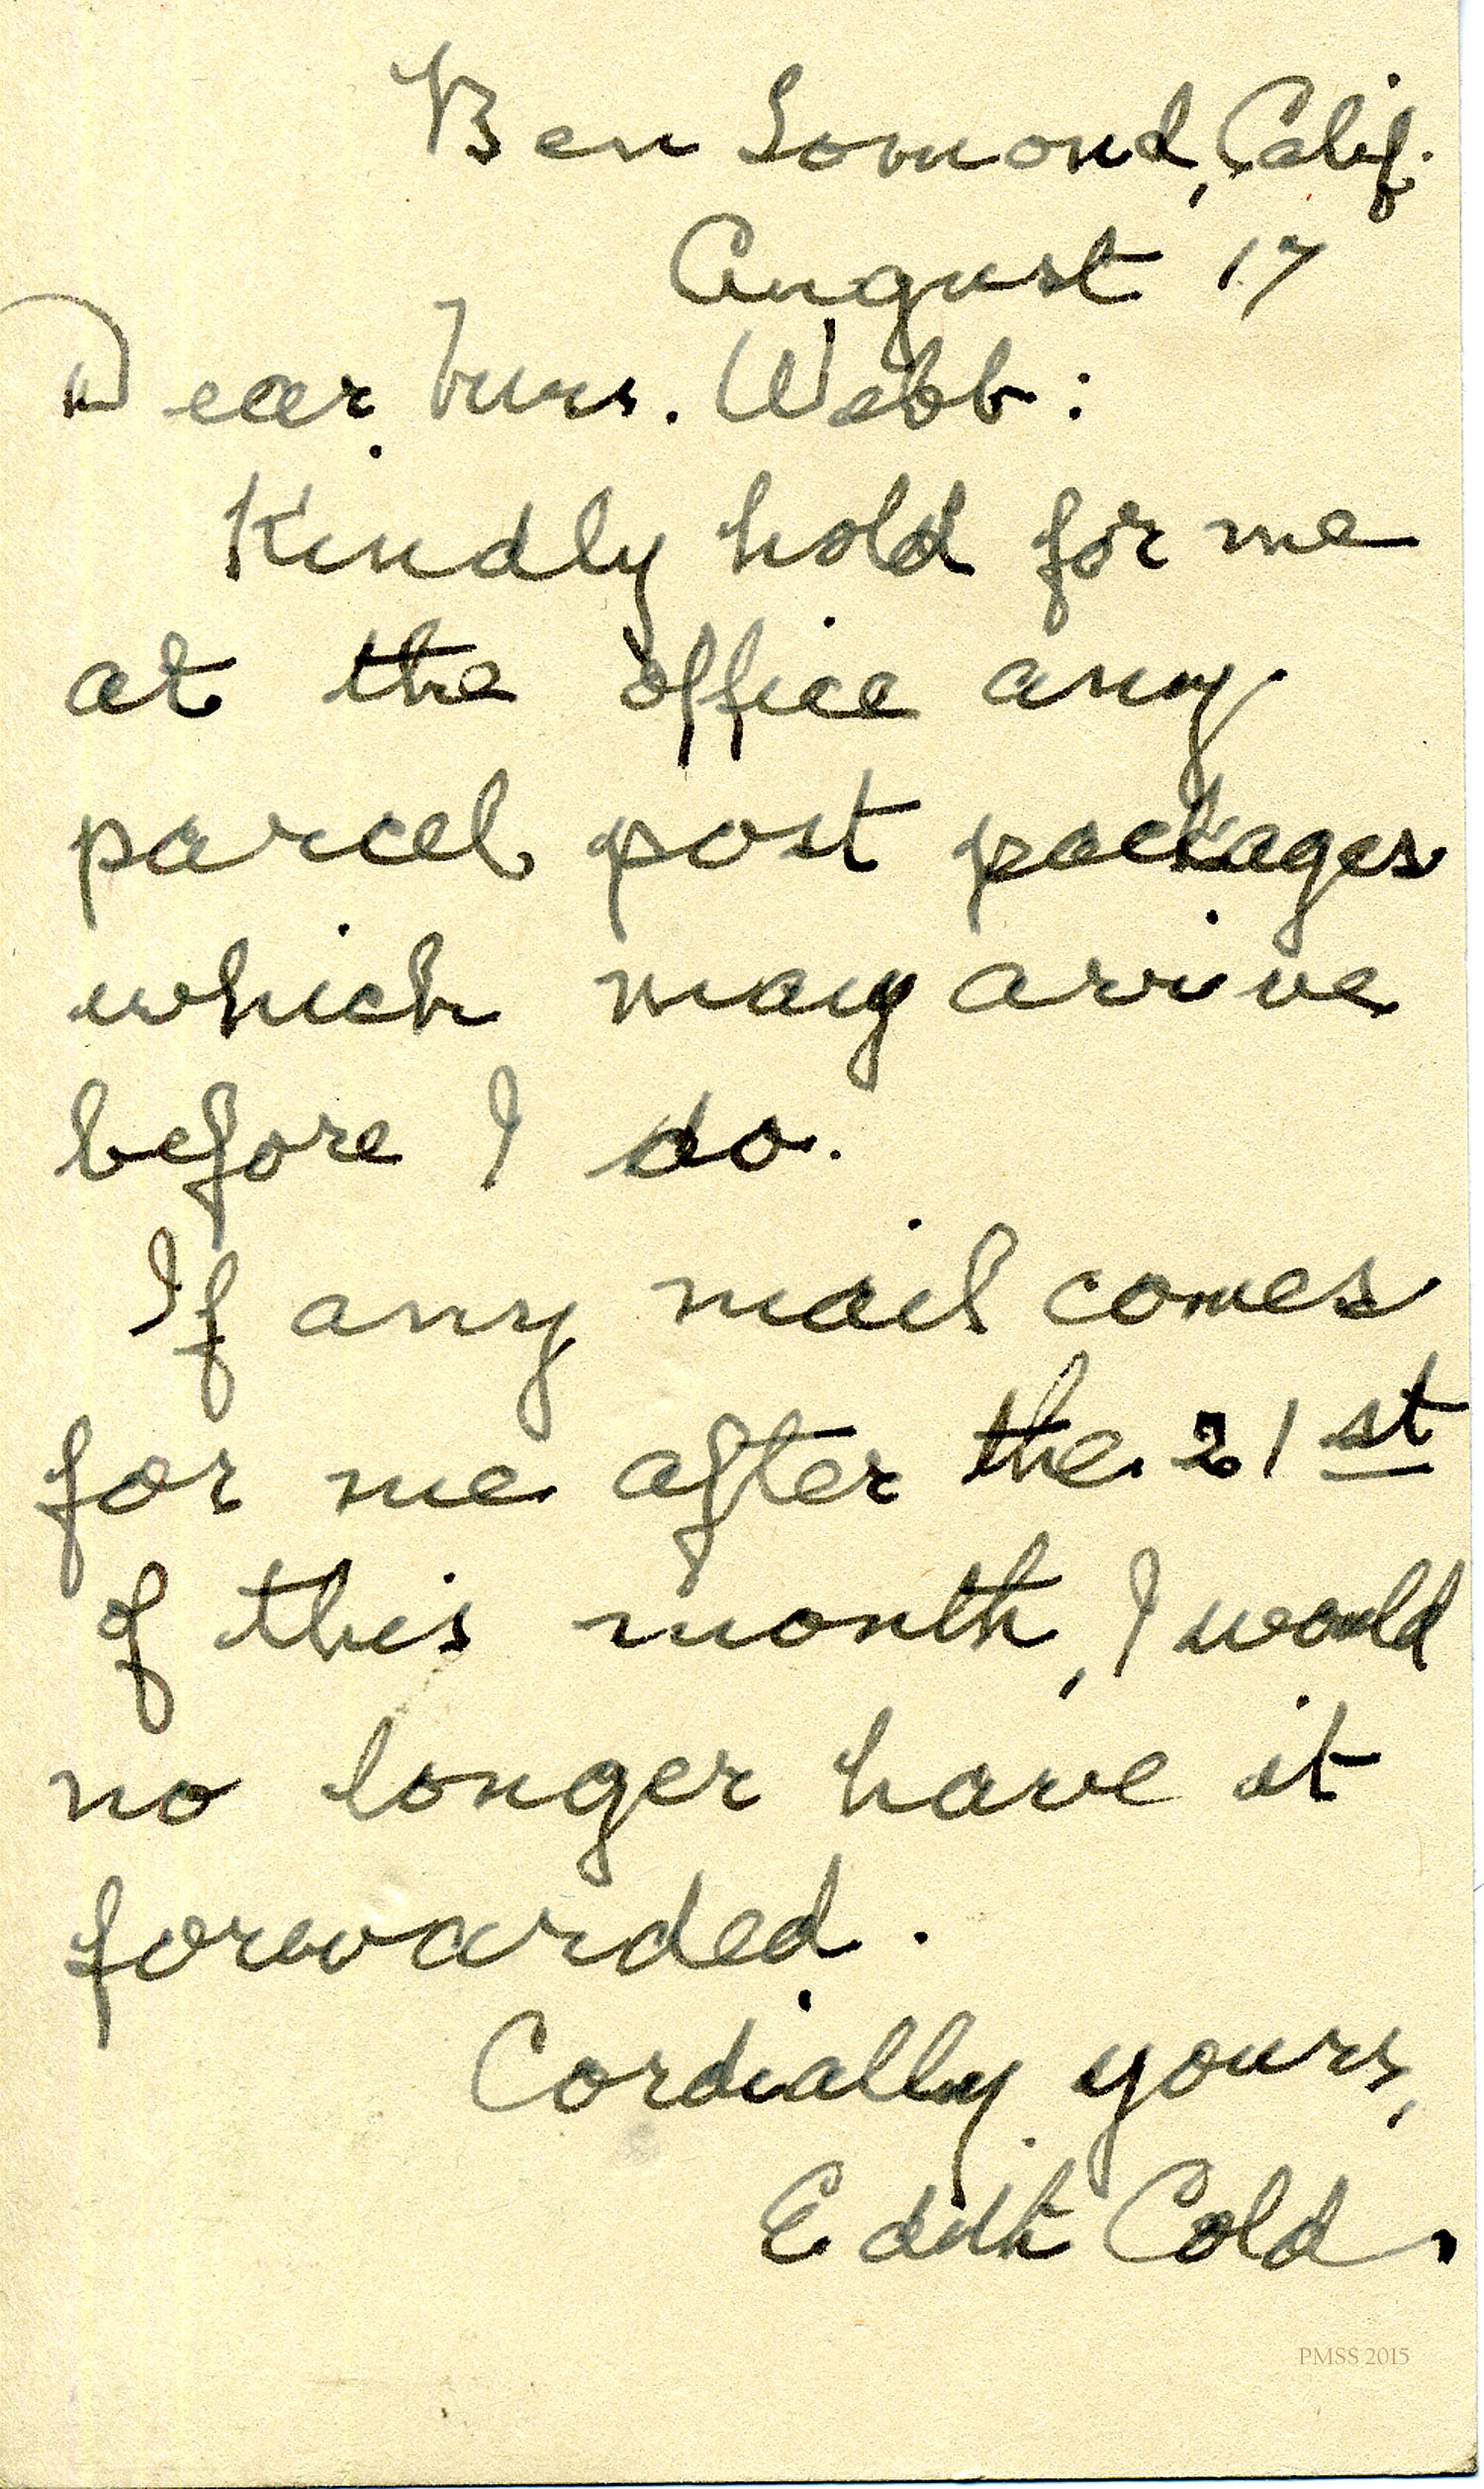 Ben Lomond, Calif.
August 17
Dear Mrs. Webb:
Kindly hold for me
at the office any
parcel post packages
which may arrive
before I do.
If any mail comes
for me after the 21st
of this month, I would
no longer have it
forwarded.
Cordially yours,
Edith Cold.
PMSS 2015